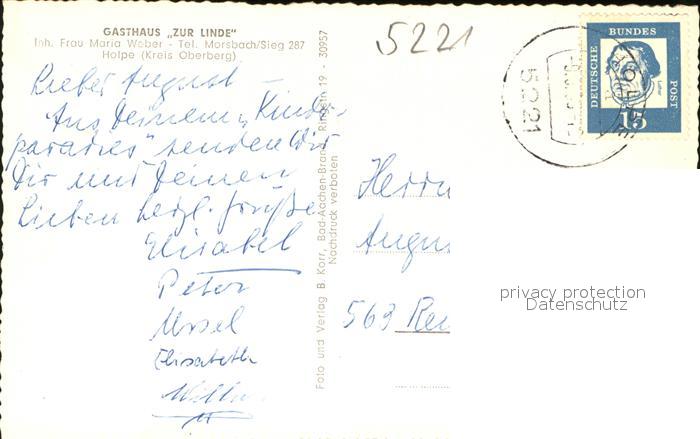 GASTHAUS „ZUR LINDE“
Inh. Frau Maria Weber - Tel. Morsbach/Sieg 287
Holpe (Kreis Oberberg)
5221
Lieber August –
Aus Deinem „Kinder-
paradies“ senden wir
Dir und Deinen
Lieben herzl. Grüße
Elisabeth
Peter
Ursel
Elisabeth
Foto und Verlag B. Korr, Bad-Aachen-Brand, Ring 19 - 30957
Nachdruck verboten
DEUTSCHE
BUNDES
POST
Luther
15
5221
Herrn
Augus
563 Rem
privacy protection
Datenschutz